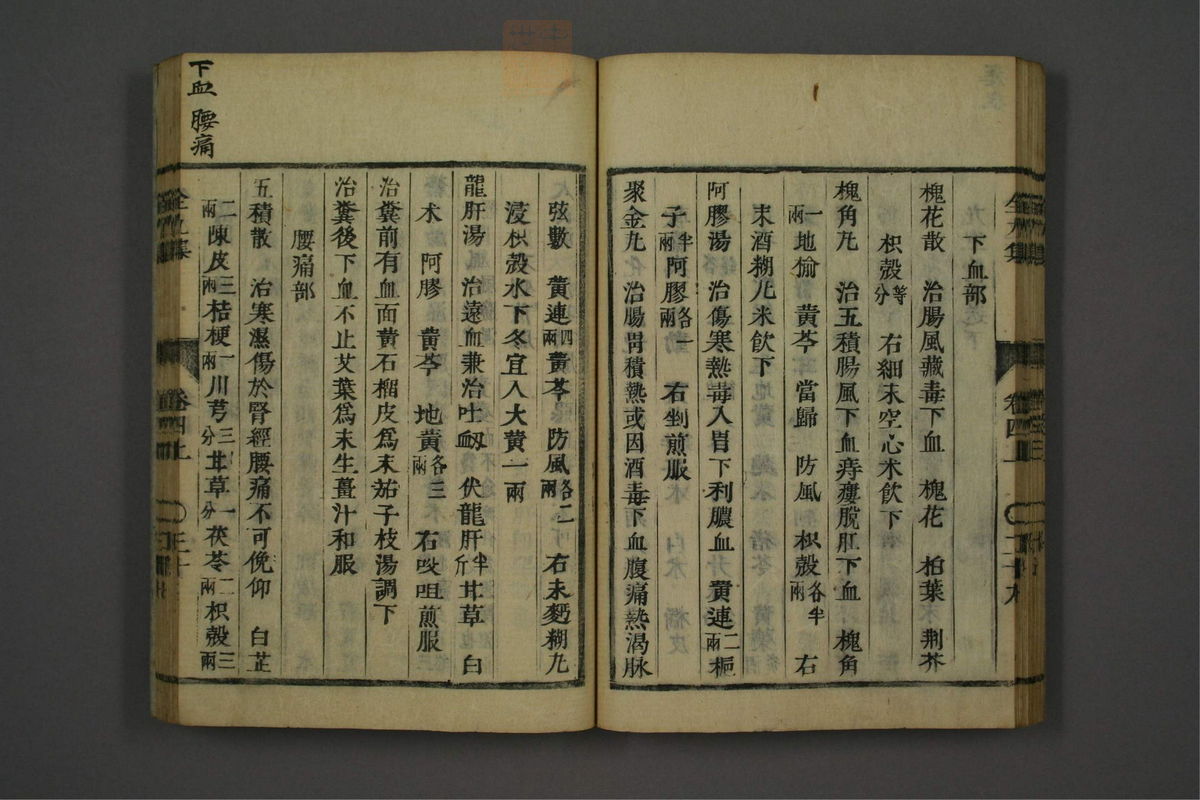 下血部
槐花散 治腸風藏毒下血 槐花 柏葉 荆芥
枳殼等分 右細末空心米飲下
槐角丸 治五積腸風下血痔瘻脫肛下血 槐角
一兩地榆 黄芩 當歸 防風 枳殼各半兩 右
末酒糊丸米飲下
阿膠湯 治傷寒熱毒入胃下利膿血 黄連二兩梔
子半兩阿膠各一兩 右剉煎服
聚金丸 治腸胃積熱或因酒毒下血腹痛熱渴脉
弦數 黄連四兩黄芩 防風各二兩 右末麪糊丸
浸枳殼水下冬宜入大黄一兩
龍肝湯 治遠血兼治吐衂 伏龍肝半斤甘草 白
术 阿膠 黄芩 地黄各三兩 右㕮咀煎服
治糞前有血面黄石榴皮爲末茄子枝湯調下
治糞後下血不止艾葉爲末生薑汁和服
腰痛部
五積散 治寒濕傷於腎經腰痛不可俛仰 白芷
二兩陳皮三兩桔梗一兩川芎三分甘草一分茯苓二兩枳殼三兩
下血 腰痛
全九集
卷四上
三十
全九集
卷四上
二十九